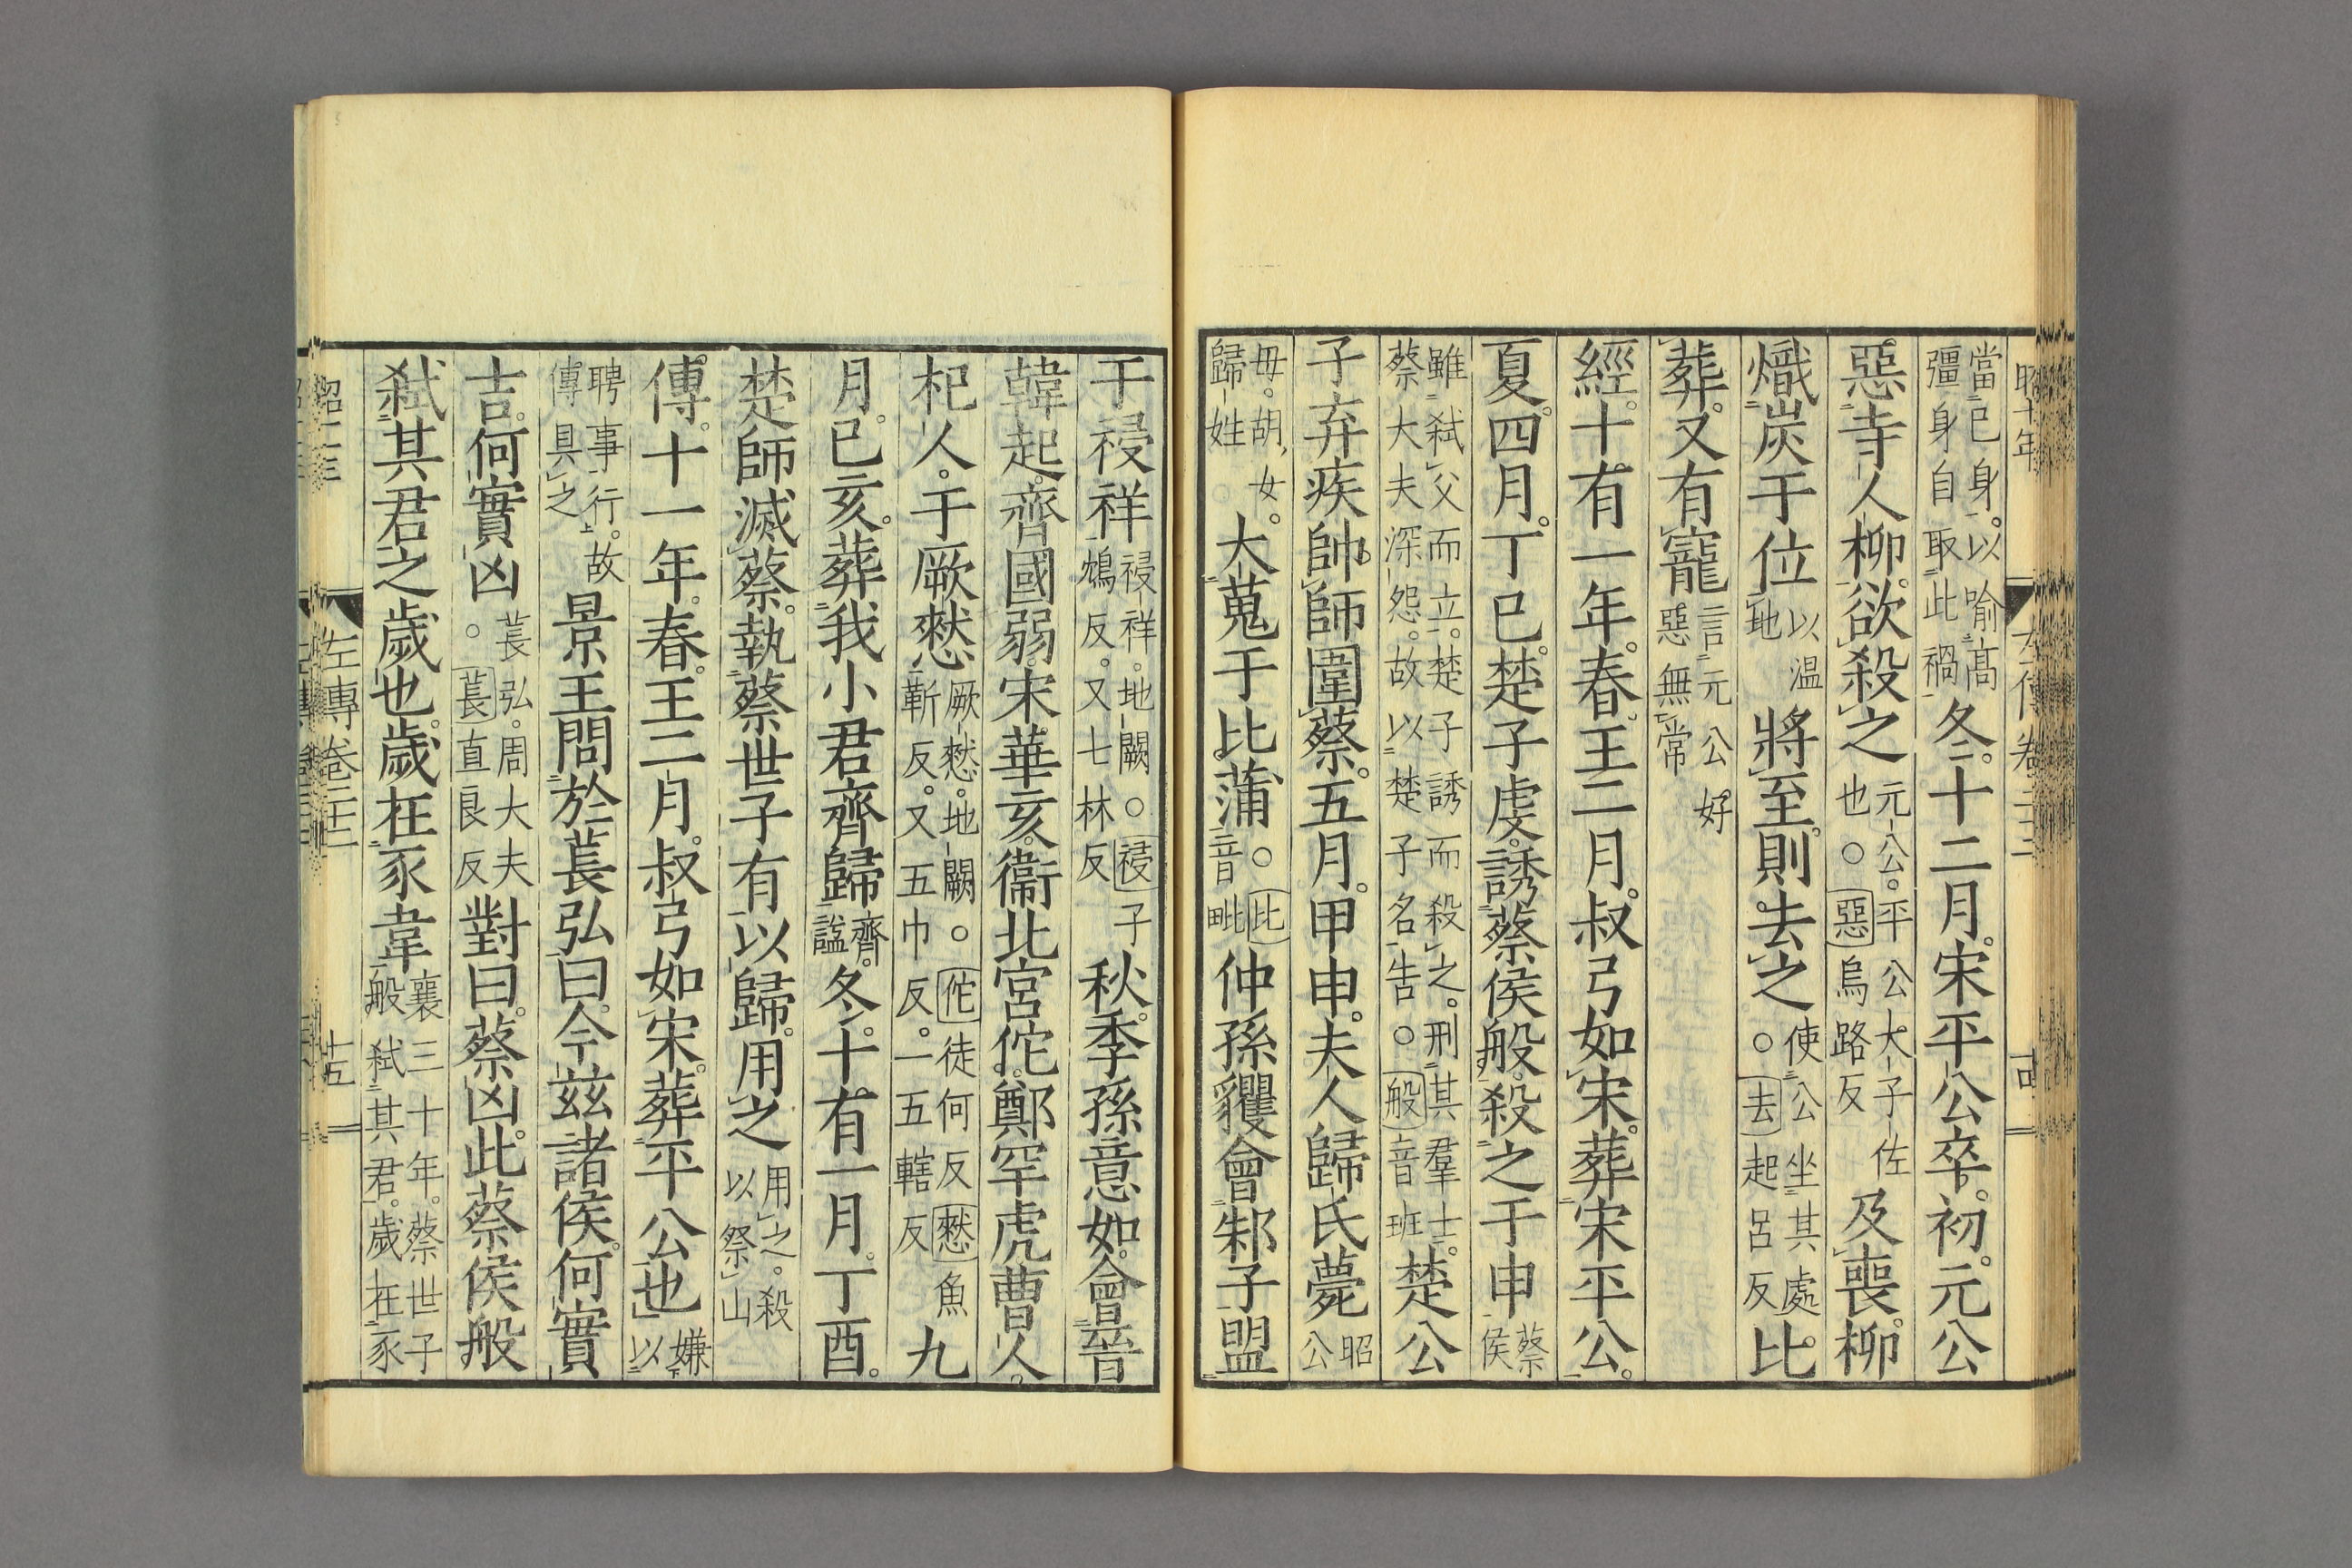 昭十年
當己身。以喻髙彊身自取此禍冬。十二月。宋平公卒。初。元公
惡寺人柳。欲殺之元公。平公大子佐也。○惡烏路反及喪。柳
熾炭于位以温地將至。則去之使公坐其處○去起呂反比
葬。又有寵言元公好惡無常
經。十有一年。春。王二月。叔弓如宋。葬宋平公。
夏。四月。丁巳。楚子虔。誘蔡侯般。殺之于申蔡侯
雖弑父而立。楚子誘而殺之。刑其羣士。蔡大夫深怨。故以楚子名告○般音班楚公
子弃疾帥師圍蔡。五月。甲申。夫人歸氏薨昭公
母。胡女。歸姓大蒐于比蒲○比音毗仲孫貜會邾子盟
于祲祥祲祥。地闕○祲子鴆反。又七林反秋。季孫意如。會晉
韓起。齊國弱。宋華亥。衞北宮佗。鄭罕虎曹人。
杞人。于厥憖厥憖。地闕。○佗徒何反憖魚靳反。又五巾反。一五轄反九
月。己亥。葬我小君齊歸齊謚冬。十有一月。丁酉。
楚師滅蔡。執蔡世子有以歸。用之用之。殺以祭山
傳。十一年。春。王二月。叔弓如宋。葬平公也嫌以
聘事行。故傳具之景王問於萇弘曰。今茲諸侯。何實
吉。何實凶萇弘。周大夫○萇直良反對曰。蔡凶。此蔡侯般
弑其君之歲也。歲在豕韋襄三十年。蔡世子般弑其君。歲在豕
左傳卷二十二
十五